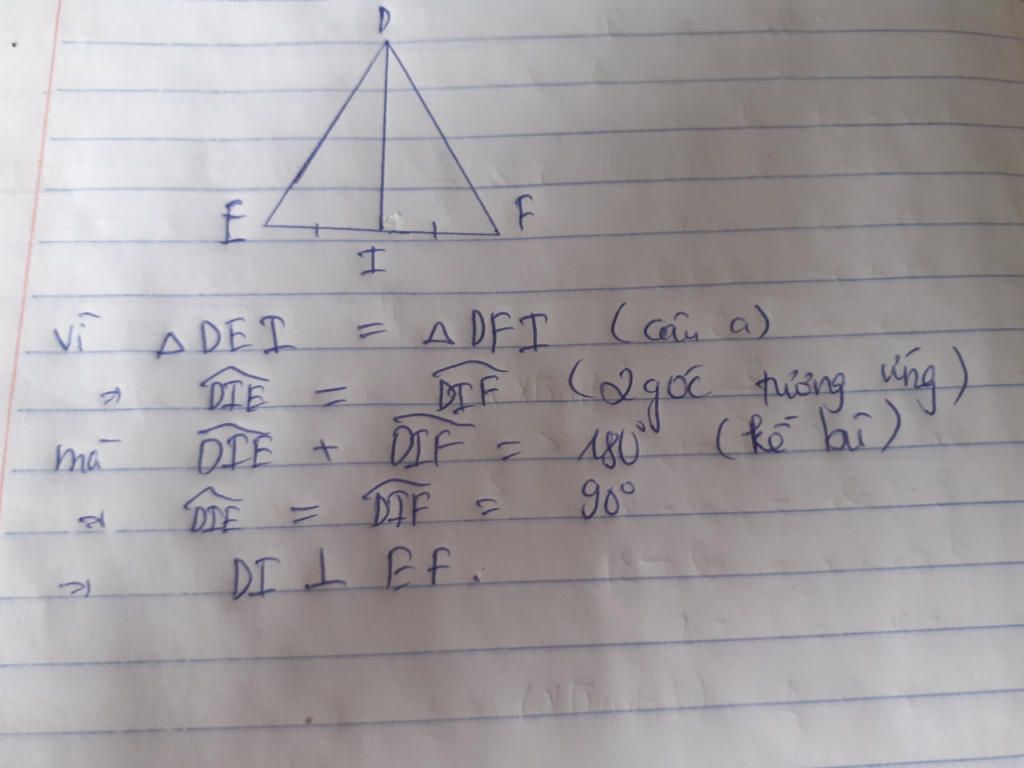 D
E F
I
Vì △DEI = △DFI (câu a)
⇒ \widehat{DIE} = \widehat{DIF} (2 góc tương ứng)
mà \widehat{DIE} + \widehat{DIF} = 180° (kề bù)
⇒ \widehat{DIE} = \widehat{DIF} = 90°
⇒ DI ⊥ EF.